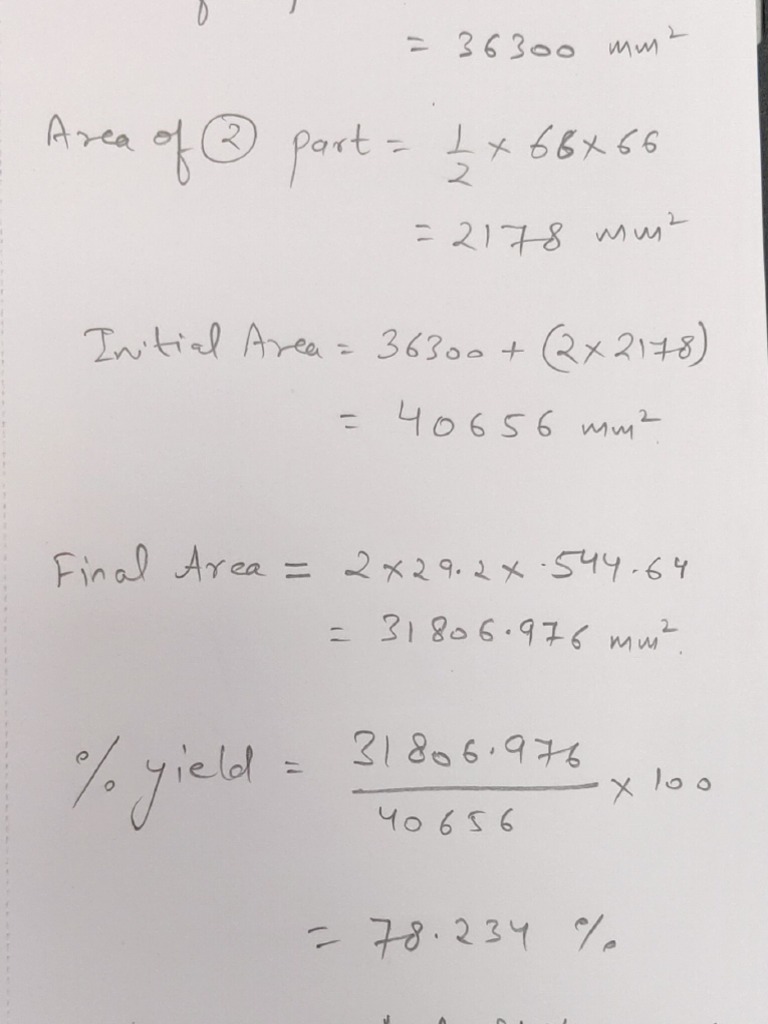 = 36300 mm²
Area of ② part = 1/2 × 66 × 66
= 2178 mm²
Initial Area = 36300 + (2 × 2178)
= 40656 mm²
Final Area = 2 × 29.2 × 544.64
= 31806.976 mm².
% yield = 31806.976/40656 × 100
= 78.234 %.